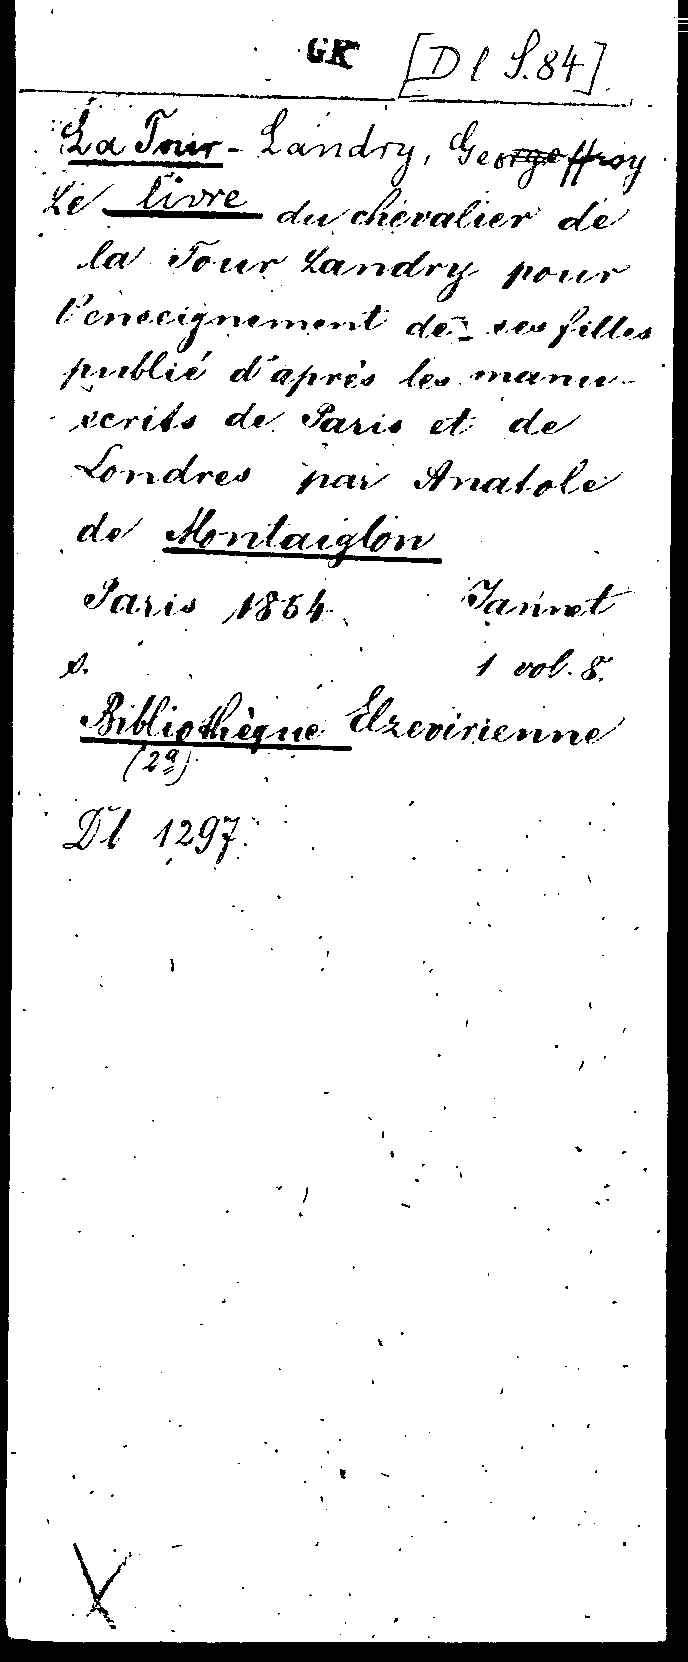 GK [Dl S.84]
La Tour-Landry, Geoffroy
Le livre du chevalier de
la Tour Landry pour
l'enseignement de ses filles
publié d'après les manu-
scrits de Paris et de
Londres par Anatole
de Montaiglon
Paris 1854 Jannet
s. 1 vol. 8.
Bibliothèque Elzevirienne
(2a)
Dl 1297.